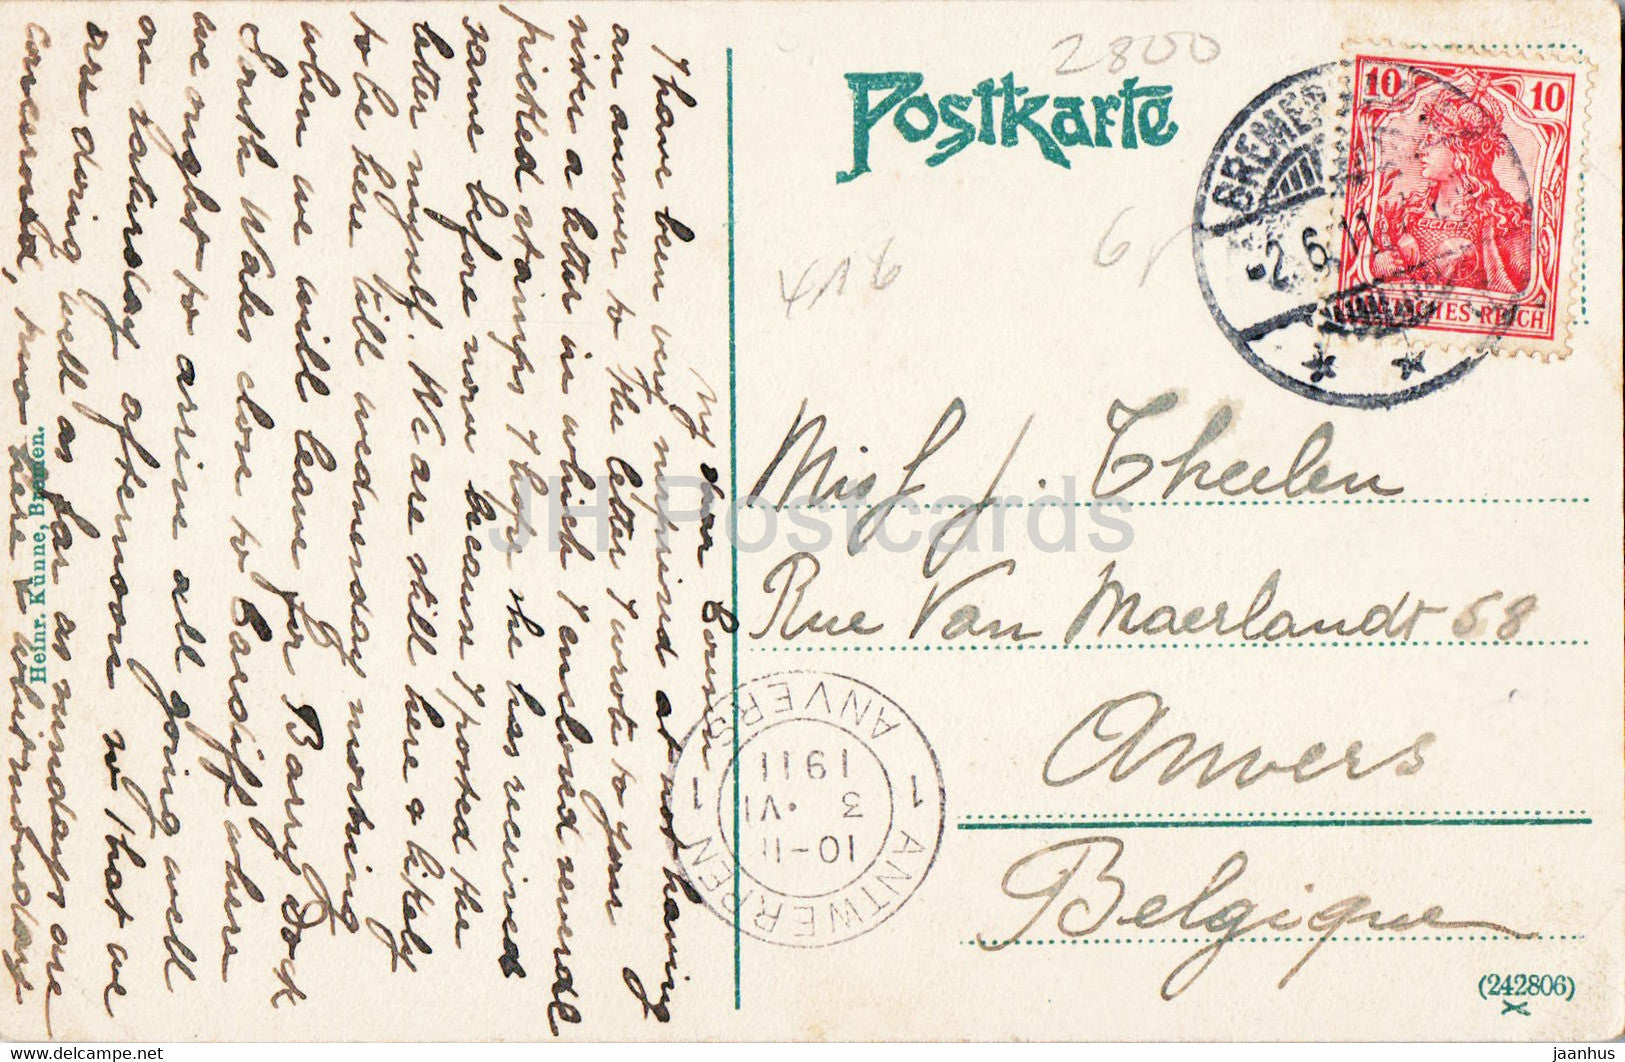 My dear Cousin
I have been very surprised at not having
an answer to the letter I wrote to your
sister a letter in which I enclosed several
picked stamps I hope she has received
same before now because I posted the
letter myself. We are still here & likely
to be here till wednesday morning
when we will leave for Barry Dock
South Wales close to Cardiff where
we ought to arrive all going well
on saturday afternoon so that we
are doing well as far as sundays are
concerned, two here & whitmonday
Heinr. Künne, Bremen.
Postkarte
2800
416
10 10
DEUTSCHES REICH
BREMER
-2.6.11
Miss J. Theelen
Rue Van Maerlandt 58
Anvers
Belgique
1 ANTWERPEN 1 ANVERS
10-11
3 VI
1911
(242806)
X
JH Postcards
www.delcampe.net
jaanhus